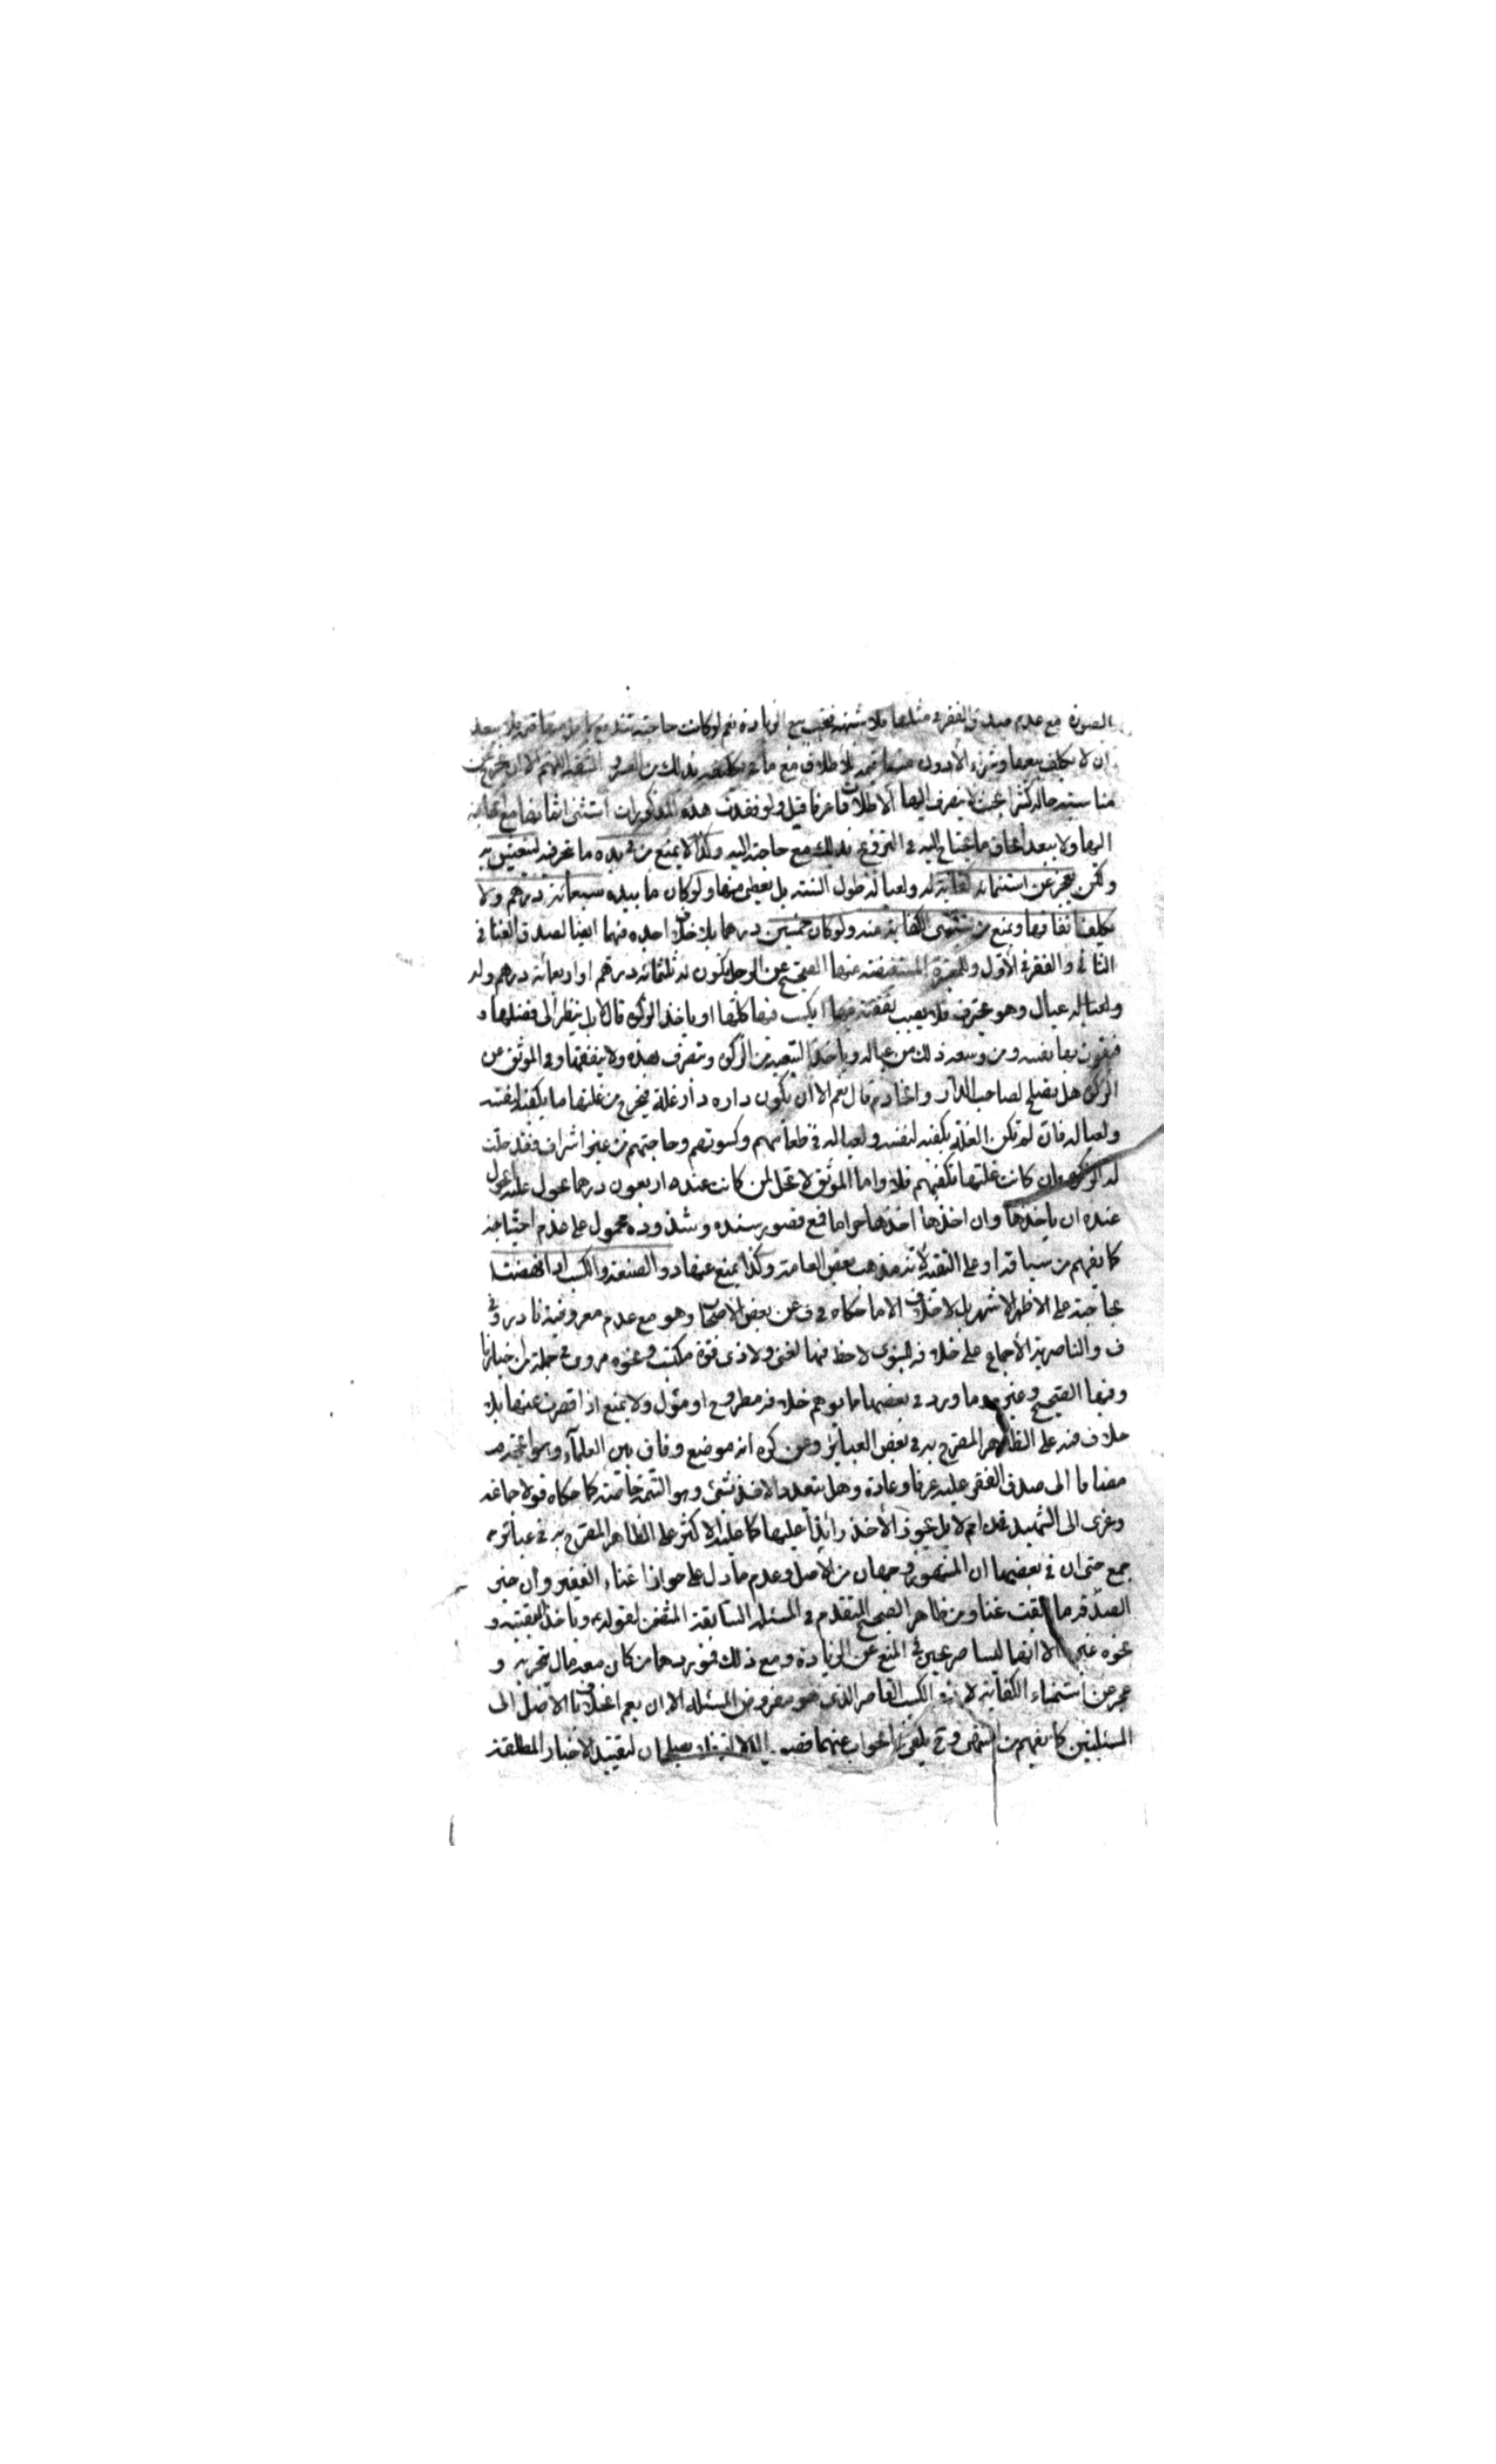 الصورة مع عدم صدق الفقر في مثلها فلا شبهة فيجب بيع الزيادة نعم لو كانت حاجته تندفع
ان لا يكلف بيعها وشراء الأدون منها قيمة للاطلاق مع ما في تكليفه بذلك من العسر و المشقة اللهم الا ان يخرج عن
مناسبته حاله كثيرا بحيث لا ينصرف اليها الاطلاقات عرفا قيل ولو فقدت هذه المذكورات استثنى اثمانها مع الحاجة
اليها ولا يبعد الحاق ما يحتاج اليه في التزويج بذلك مع حاجته اليه وكذا لا يمنع من في يده ما يتعيش به
ولكن يعجز عن استنماء كفاية له ولعياله طول السنة بل يعطى منها ولو كان ما بيده سبعمائة درهم ولا
يكلف انفاقها ويمنع من يستنمي الكفاية منه ولو كان خمسين درهما بلا خلاف اجده فيهما ايضا لصدق الغنا في
الثاني والفقر في الأول وللمعتبرة المستفيضة منها الصحيح عن الرجل يكون له ثلثمائة درهم او اربعمائة درهم وله
وله عيال وهو يحترف فلا يصيب نفقته فيها ايكب فيها كلها او ياخذ الزكوة قال لا بل ينظر الى فضلها
فيقوت بها نفسه ومن وسعه ذلك من عياله وياخذ البقية من الزكوة ويتصرف بهذه ولا ينفقها وفي الموثق عن
الزكوة هل يصلح لصاحب الدار والخادم قال نعم الا ان يكون داره دار غلة فيخرج من غلتها ما يكفيه لنفسه
ولعياله فان لم تكن الغلة يكفيه لنفسه ولعياله في طعامهم وكسوتهم وحاجتهم من غير اسراف فقد حلت
له الزكوة وان كانت غلتها تكفيهم فلا واما الموثق لا تحل لمن كانت عنده اربعون درهما يحول عليه الحول
عنده ان ياخذها وان اخذها اخذها حراما فمع قصور سنده وشذوذه محمول على عدم احتياجه
كما يفهم من سياقه او على التقية لانه مذهب بعض العامة وكذا يمنع عنها ذو الصنعة والكسب اذا نهضت
بحاجته على الاظهر الاشهر بل لا خلاف الا ما حكاه في ف عن بعض الاصحاب وهو مع عدم معروفيته نادر وفي
ف والناصرية الأجماع على خلافه للنبوي لا حظ فيها لغني ولا ذي قوة مكتسب ونحوه مروي في جملة من اخبارنا
وفيها الصحيح وغيره وما ورد في بعضها مما يوهم خلافه مطروح او مؤول ولا يمنع اذا قصرت عنها بلا
خلاف فيه على الظاهر المصرح به في بعض العبائر وعن كره انه موضع وفاق بين العلماء وهو الحجة
مضافا الى صدق الفقر عليه عرفا وعادة وهل يتعدد الاخذ بشئ وهو التتمة خاصة كما حكاه قولا جماعة
وعزى الى الشهيد قده ام لا بل يجوز الأخذ زائدا عليها كما عليه الاكثر على الظاهر المصرح به في عبائر
جمع حتى ان في بعضها ان المشهور وجهان من الأصل وعدم ما دل على جواز اغناء الفقير وان خير
الصدقة ما ابقت غنا ومن ظاهر الصحيح المتقدم في المسئلة السابقة المتضمن لقوله ع وياخذ البقية و
نحوه غيره الا انها ليسا صريحين في المنع عن الزيادة ومع ذلك فموردهما من كان معه مال يتجر به و
عجز عن استنماء الكفاية لا ذو الكسب القاصر الذي هو مفروض المسئلة الا ان يعم الخلاف الاصل الى
المسئلتين كما يفهم من البعض وح يلغى الجواب عنهما قصور الدلالة يصلحان لتقييد الاخبار المطلقة